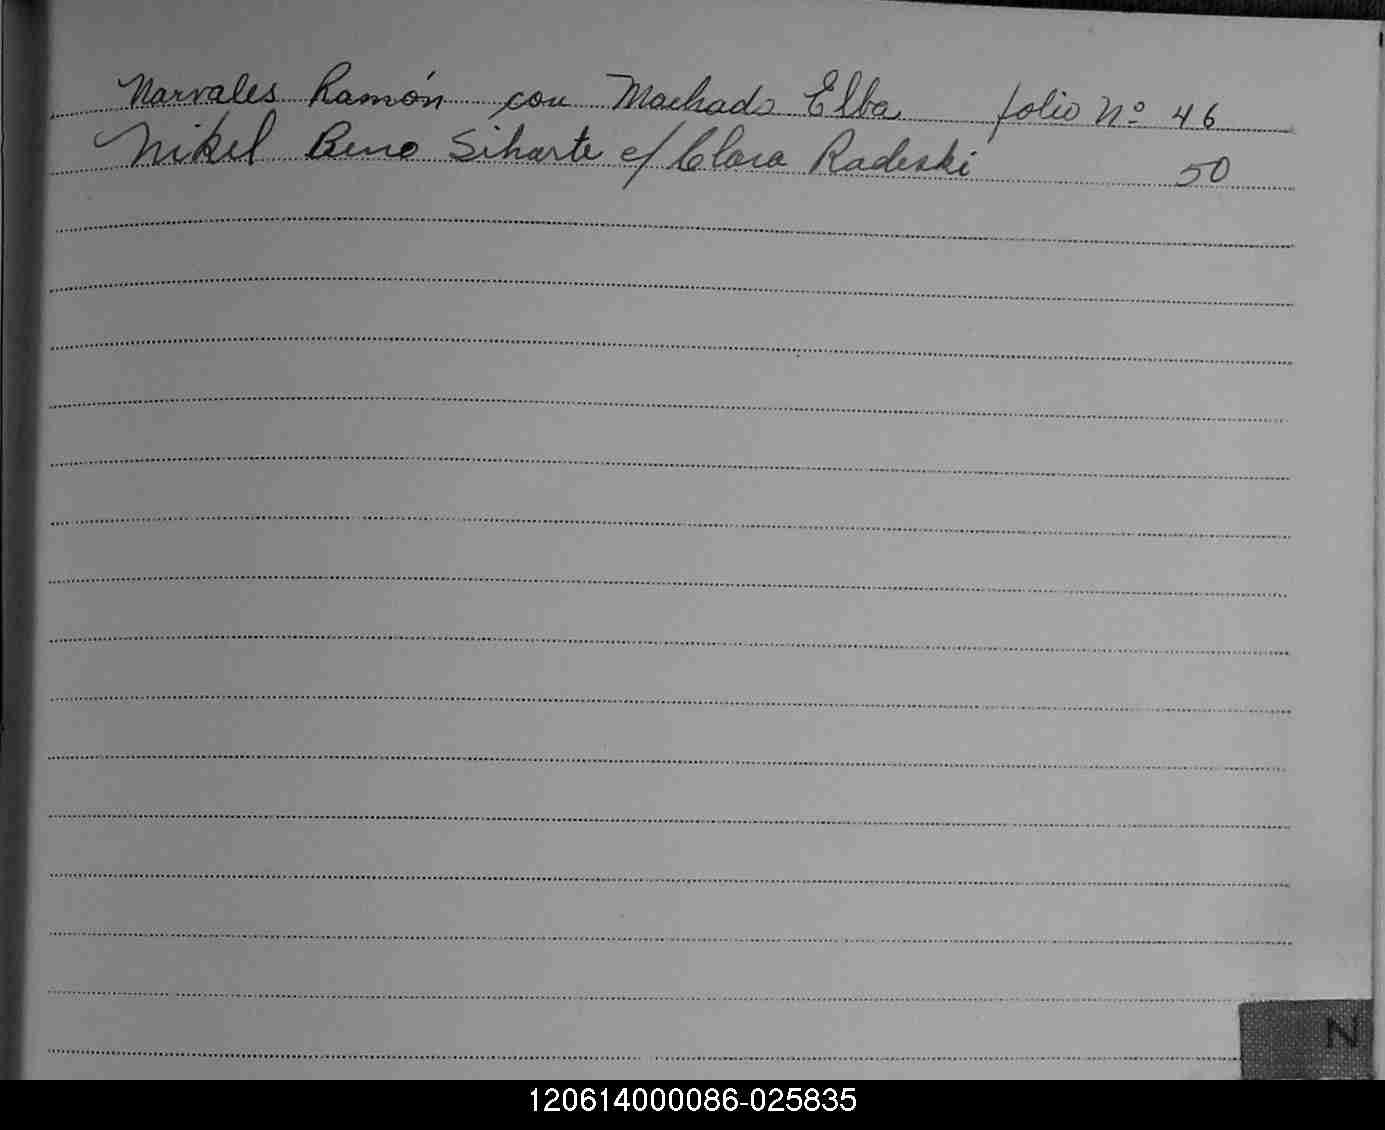 Narvales Ramón con Machado Elba folio Nº 46
Nikel Beno Siharte c/ Clara Radeski 50
N
120614000086-025835